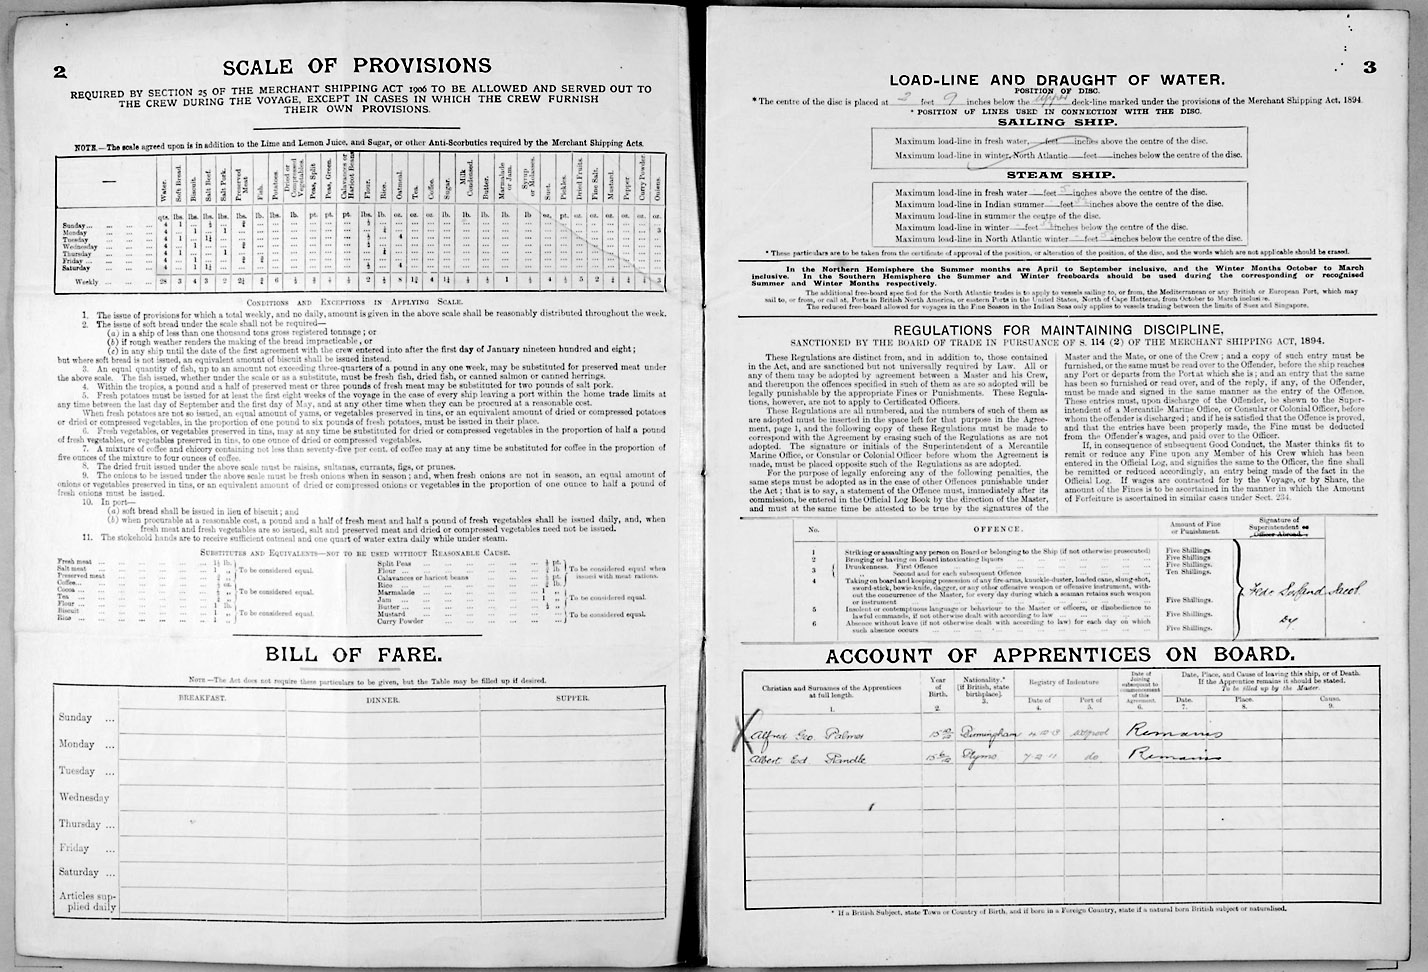 2
SCALE OF PROVISIONS
REQUIRED BY SECTION 25 OF THE MERCHANT SHIPPING ACT 1906 TO BE ALLOWED AND SERVED OUT TO
THE CREW DURING THE VOYAGE, EXCEPT IN CASES IN WHICH THE CREW FURNISH
THEIR OWN PROVISIONS.
NOTE.—The scale agreed upon is in addition to the Lime and Lemon Juice, and Sugar, or other Anti-Scorbutics required by the Merchant Shipping Acts.
Water. Soft Bread. Biscuit. Salt Beef. Salt Pork. Preserved Meat Fish. Potatoes. Dried or Compressed Vegetables. Peas, Split Peas, Green. Calavances or Haricot Beans Flour. Rice. Oatmeal. Tea. Coffee. Sugar. Milk Condensed. Butter. Marmalade or Jam. Syrup or Molasses. Suet. Pickles. Dried Fruits. Fine Salt. Mustard. Pepper Curry Powder. Onions.
qts. lbs. lbs. lbs. lbs. lbs. lb. lbs. lb. pt. pt. pt. lbs. lb. oz. oz. oz. lb. lb. lb. lb lb oz. pt. oz. oz. oz. oz. oz. oz.
Sunday
Monday
Tuesday
Wednesday
Thursday
Friday
Saturday
Weekly
CONDITIONS AND EXCEPTIONS IN APPLYING SCALE.
1. The issue of provisions for which a total weekly, and no daily, amount is given in the above scale shall be reasonably distributed throughout the week.
2. The issue of soft bread under the scale shall not be required—
(a) in a ship of less than one thousand tons gross registered tonnage; or
(b) if rough weather renders the making of the bread impracticable, or
(c) in any ship until the date of the first agreement with the crew entered into after the first day of January nineteen hundred and eight;
but where soft bread is not issued, an equivalent amount of biscuit shall be issued instead.
3. An equal quantity of fish, up to an amount not exceeding three-quarters of a pound in any one week, may be substituted for preserved meat under
the above scale. The fish issued, whether under the scale or as a substitute, must be fresh fish, dried fish, or canned salmon or canned herrings.
4. Within the tropics, a pound and a half of preserved meat or three pounds of fresh meat may be substituted for two pounds of salt pork.
5. Fresh potatoes must be issued for at least the first eight weeks of the voyage in the case of every ship leaving a port within the home trade limits at
any time between the last day of September and the first day of May, and at any other time when they can be procured at a reasonable cost.
When fresh potatoes are not so issued, an equal amount of yams, or vegetables preserved in tins, or an equivalent amount of dried or compressed potatoes
or dried or compressed vegetables, in the proportion of one pound to six pounds of fresh potatoes, must be issued in their place.
6. Fresh vegetables, or vegetables preserved in tins, may at any time be substituted for dried or compressed vegetables in the proportion of half a pound
of fresh vegetables, or vegetables preserved in tins, to one ounce of dried or compressed vegetables.
7. A mixture of coffee and chicory containing not less than seventy-five per cent. of coffee may at any time be substituted for coffee in the proportion of
five ounces of the mixture to four ounces of coffee.
8. The dried fruit issued under the above scale must be raisins, sultanas, currants, figs, or prunes.
9. The onions to be issued under the above scale must be fresh onions when in season; and, when fresh onions are not in season, an equal amount of
onions or vegetables preserved in tins, or an equivalent amount of dried or compressed onions or vegetables in the proportion of one ounce to half a pound of
fresh onions must be issued.
10. In port—
(a) soft bread shall be issued in lieu of biscuit; and
(b) when procurable at a reasonable cost, a pound and a half of fresh meat and half a pound of fresh vegetables shall be issued daily, and, when
fresh meat and fresh vegetables are so issued, salt and preserved meat and dried or compressed vegetables need not be issued.
11. The stokehold hands are to receive sufficient oatmeal and one quart of water extra daily while under steam.
SUBSTITUTES AND EQUIVALENTS—NOT TO BE USED WITHOUT REASONABLE CAUSE.
Fresh meat
Salt meat
Preserved meat
To be considered equal.
Coffee
Cocoa
Tea
To be considered equal.
Flour
Biscuit
Rice
To be considered equal.
Split Peas
Flour
Calavances or haricot beans
Rice
To be considered equal when issued with meat rations.
Marmalade
Jam
Butter
To be considered equal.
Mustard
Curry Powder
To be considered equal.
BILL OF FARE.
NOTE—The Act does not require these particulars to be given, but the Table may be filled up if desired.
BREAKFAST. DINNER. SUPPER.
Sunday
Monday
Tuesday
Wednesday
Thursday
Friday
Saturday
Articles sup-
plied daily
3
LOAD-LINE AND DRAUGHT OF WATER.
POSITION OF DISC.
* The centre of the disc is placed at 2 feet 9 inches below the upper deck-line marked under the provisions of the Merchant Shipping Act, 1894
* POSITION OF LINES USED IN CONNECTION WITH THE DISC.
SAILING SHIP.
Maximum load-line in fresh water, feet inches above the centre of the disc.
Maximum load-line in winter, North Atlantic feet inches below the centre of the disc.
STEAM SHIP.
Maximum load-line in fresh water feet inches above the centre of the disc.
Maximum load-line in Indian summer feet inches above the centre of the disc.
Maximum load-line in summer the centre of the disc.
Maximum load-line in winter feet inches below the centre of the disc.
Maximum load-line in North Atlantic winter feet inches below the centre of the disc.
* These particulars are to be taken from the certificate of approval of the position, or alteration of the position, of the disc, and the words which are not applicable should be erased.
In the Northern Hemisphere the Summer months are April to September inclusive, and the Winter Months October to March
inclusive. In the Southern Hemisphere the Summer and Winter freeboards should be used during the corresponding or recognised
Summer and Winter Months respectively.
The additional free-board specified for the North Atlantic trades is to apply to vessels sailing to, or from, the Mediterranean or any British or European Port, which may
sail to, or from, or call at, Ports in British North America, or eastern Ports in the United States, North of Cape Hatteras, from October to March inclusive.
The reduced free-board allowed for voyages in the Fine Season in the Indian Seas only applies to vessels trading between the limits of Suez and Singapore.
REGULATIONS FOR MAINTAINING DISCIPLINE,
SANCTIONED BY THE BOARD OF TRADE IN PURSUANCE OF S. 114 (2) OF THE MERCHANT SHIPPING ACT, 1894.
These Regulations are distinct from, and in addition to, those contained
in the Act, and are sanctioned but not universally required by Law. All or
any of them may be adopted by agreement between a Master and his Crew,
and thereupon the offences specified in such of them as are so adopted will be
legally punishable by the appropriate Fines or Punishments. These Regula-
tions, however, are not to apply to Certificated Officers.
These Regulations are all numbered, and the numbers of such of them as
are adopted must be inserted in the space left for that purpose in the Agree-
ment, page 1, and the following copy of these Regulations must be made to
correspond with the Agreement by erasing such of the Regulations as are not
adopted. The signature or initials of the Superintendent of a Mercantile
Marine Office, or Consular or Colonial Officer before whom the Agreement is
made, must be placed opposite such of the Regulations as are adopted.
For the purpose of legally enforcing any of the following penalties, the
same steps must be adopted as in the case of other Offences punishable under
the Act; that is to say, a statement of the Offence must, immediately after its
commission, be entered in the Official Log Book by the direction of the Master,
and must at the same time be attested to be true by the signatures of the
Master and the Mate, or one of the Crew; and a copy of such entry must be
furnished, or the same must be read over to the Offender, before the ship reaches
any Port or departs from the Port at which she is; and an entry that the same
has been so furnished or read over, and of the reply, if any, of the Offender,
must be made and signed in the same manner as the entry of the Offence.
These entries must, upon discharge of the Offender, be shewn to the Super-
intendent of a Mercantile Marine Office, or Consular or Colonial Officer, before
whom the offender is discharged; and if he is satisfied that the Offence is proved,
and that the entries have been properly made, the Fine must be deducted
from the Offender's wages, and paid over to the Officer.
If, in consequence of subsequent Good Conduct, the Master thinks fit to
remit or reduce any Fine upon any Member of his Crew which has been
entered in the Official Log, and signifies the same to the Officer, the fine shall
be remitted or reduced accordingly, an entry being made of the fact in the
Official Log. If wages are contracted for by the Voyage, or by Share, the
amount of the Fines is to be ascertained in the manner in which the Amount
of Forfeiture is ascertained in similar cases under Sect. 234.
No. OFFENCE. Amount of Fine or Punishment. Signature of Superintendent or Officer Abroad.
1 Striking or assaulting any person on Board or belonging to the Ship (if not otherwise prosecuted) Five Shillings
2 Bringing or having on Board intoxicating liquors Five Shillings
3 Drunkenness. First Offence Five Shillings.
Second and for each subsequent Offence Ten Shillings.
4 Taking on board and keeping possession of any fire-arms, knuckle-duster, loaded cane, slung-shot,
sword-stick, bowie-knife, dagger, or any other offensive weapon or offensive instrument, with-
out the concurrence of the Master, for every day during which a seaman retains such weapon
or instrument Five Shillings.
5 Insolent or contemptuous language or behaviour to the Master or officers, or disobedience to
lawful commands, if not otherwise dealt with according to law Five Shillings.
6 Absence without leave (if not otherwise dealt with according to law) for each day on which
such absence occurs Five Shillings.
Jacob
Dy
ACCOUNT OF APPRENTICES ON BOARD.
Christian and Surnames of the Apprentices at full length. 1.
Year of Birth. 2.
Nationality.* [If British, state birthplace]. 3.
Registry of Indenture
Date of 4.
Port of 5.
Date of Joining subsequent to commencement of this Agreement. 6.
Date, Place, and Cause of leaving this ship, or of Death.
If the Apprentice remains it should be stated.
To be filled up by the Master.
Date. 7. Place. 8. Cause. 9.
X Alfred Geo. Palmer Birmingham Remains
Albert Ed Randle 7-2-11 do Remains
* If a British Subject, state Town or Country of Birth, and if born in a Foreign Country, state if a natural born British subject or naturalised.